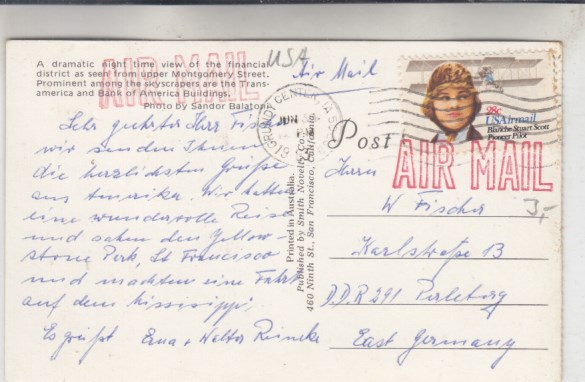 A dramatic night time view of the financial
district as seen from upper Montgomery Street.
Prominent among the skyscrapers are the Trans-
america and Bank of America Buildings.
Photo by Sandor Balatoni
AIR MAIL
USA
Air Mail
GRUNDY CENTER, IA
JUN
28c
USAirmail
Blanche Stuart Scott
Pioneer Pilot
AIR MAIL
Post
Sehr geehrter Herr Fis
wir senden Ihnen
die herzlichsten Grüße
aus Amerika. Wir hatten
eine wundervolle Reise
und sahen den Yellow-
stone Park, St Francisco
und machten eine Fahrt
auf dem Mississippi,
Es grüßt Erna + Walter Reinecke
Printed in Australia.
Published by Smith Novelty Co.
460 Ninth St., San Francisco, California.
Herrn
W Fischer
3,-
Karlstraße 13
D.D.R 291 Perleberg
East Germany